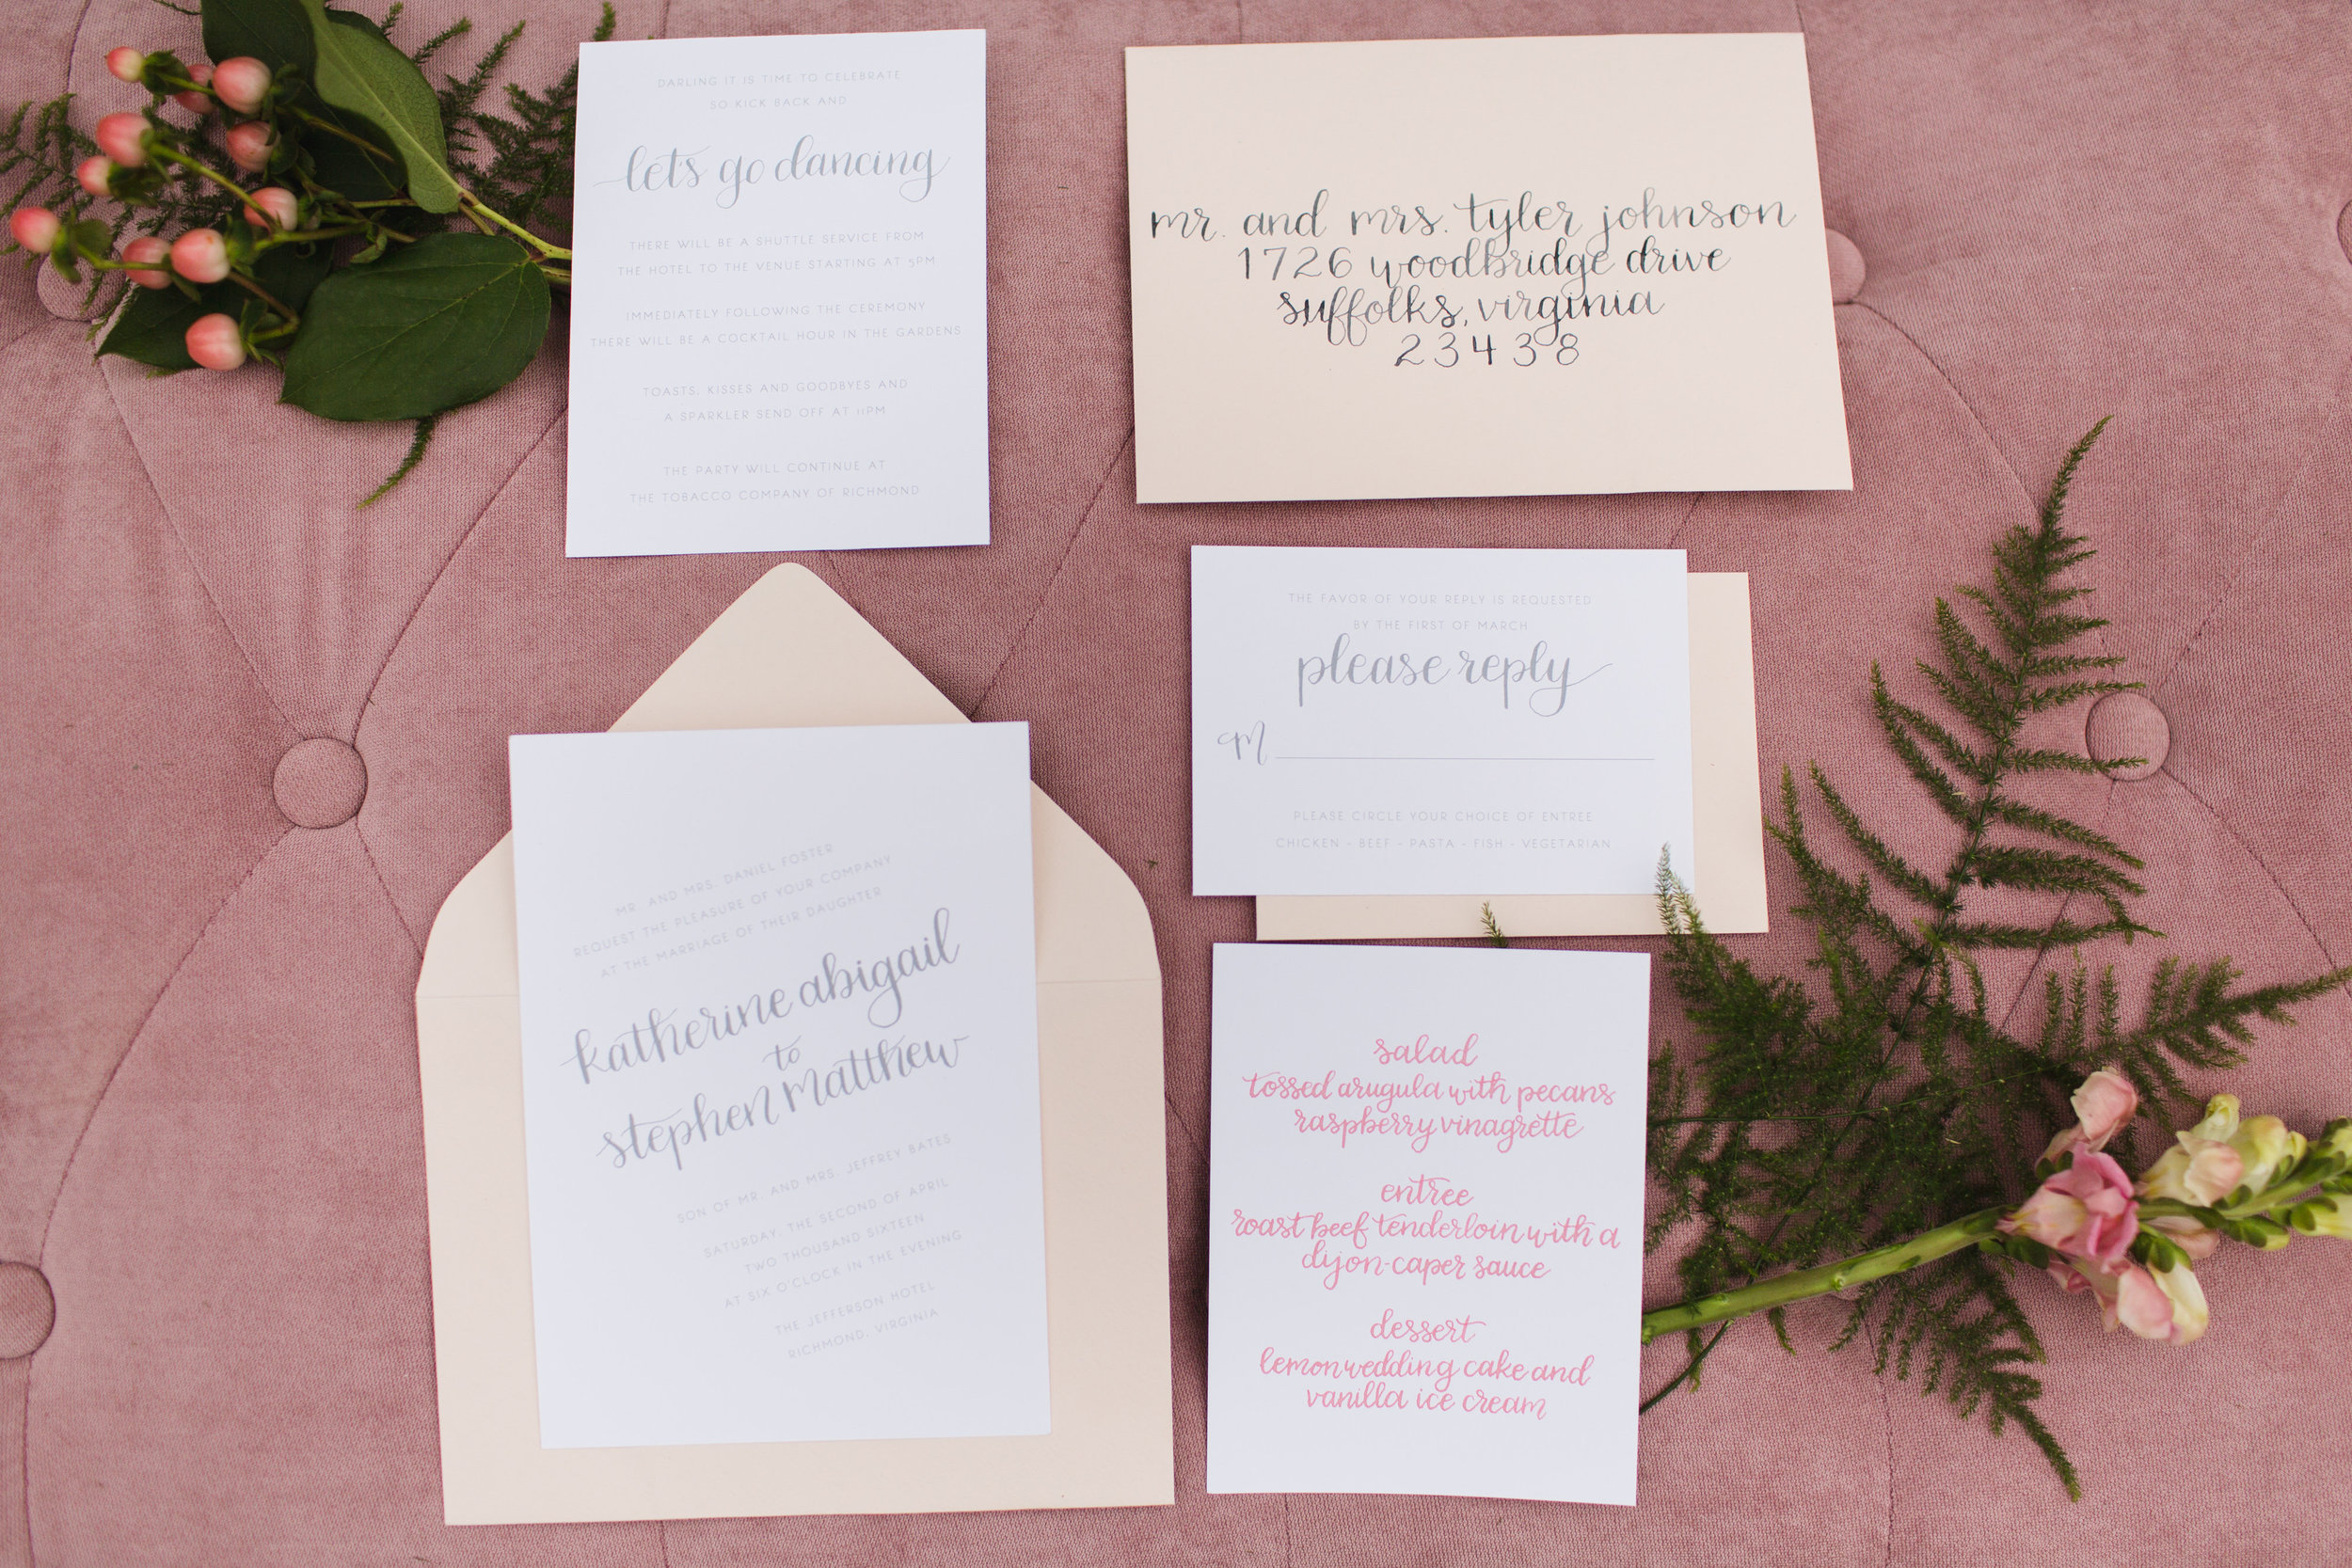 DARLING IT IS TIME TO CELEBRATE
SO KICK BACK AND
let's go dancing
THERE WILL BE A SHUTTLE SERVICE FROM
THE HOTEL TO THE VENUE STARTING AT 5PM
IMMEDIATELY FOLLOWING THE CEREMONY
THERE WILL BE A COCKTAIL HOUR IN THE GARDENS
TOASTS, KISSES AND GOODBYES AND
A SPARKLER SEND OFF AT 11PM
THE PARTY WILL CONTINUE AT
THE TOBACCO COMPANY OF RICHMOND
mr. and mrs. tyler johnson
1726 woodbridge drive
suffolks, virginia
23438
THE FAVOR OF YOUR REPLY IS REQUESTED
BY THE FIRST OF MARCH
please reply
M
PLEASE CIRCLE YOUR CHOICE OF ENTREE
CHICKEN - BEEF - PASTA - FISH - VEGETARIAN
MR. AND MRS. DANIEL FOSTER
REQUEST THE PLEASURE OF YOUR COMPANY
AT THE MARRIAGE OF THEIR DAUGHTER
katherine abigail
to
stephen matthew
SON OF MR. AND MRS. JEFFREY BATES
SATURDAY, THE SECOND OF APRIL
TWO THOUSAND SIXTEEN
AT SIX O'CLOCK IN THE EVENING
THE JEFFERSON HOTEL
RICHMOND, VIRGINIA
salad
tossed arugula with pecans
raspberry vinagrette
entree
roast beef tenderloin with a
dijon-caper sauce
dessert
lemon wedding cake and
vanilla ice cream